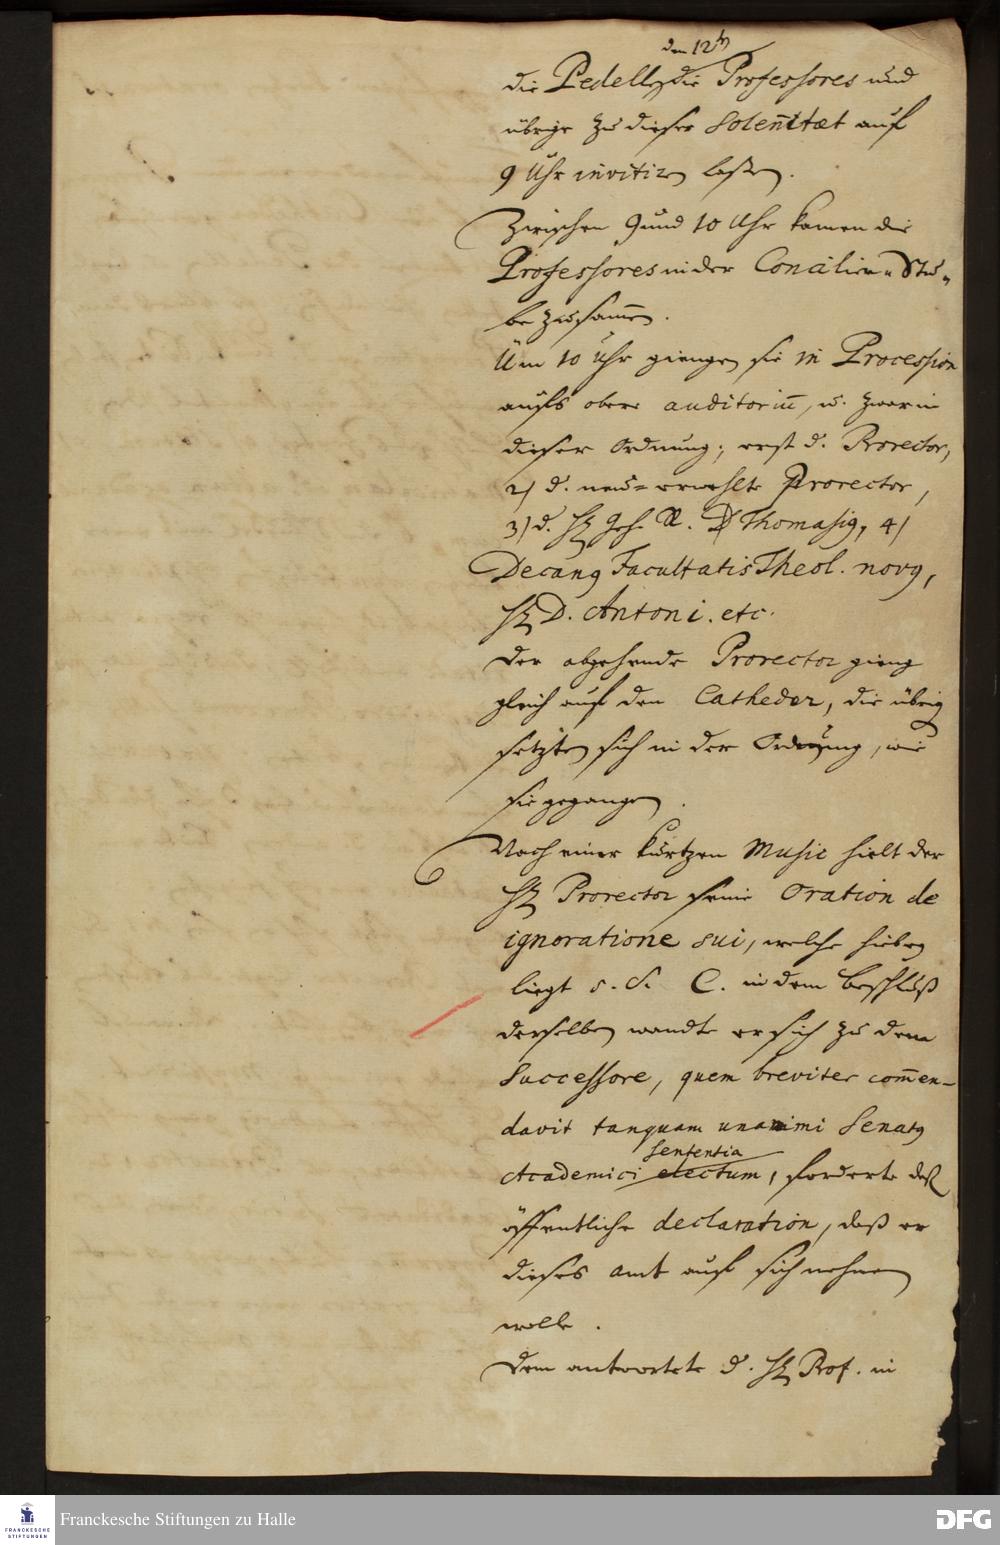 den 12ten
die Pedelle die Professores und
übrige zu dieser Solennitæt auf
9 Uhr invitiren laßen.
Zwischen 9 und 10 Uhr kamen die
Professores in der Concilien-Stu-
be zusammen.
Um 10 Uhr giengen sie in Procession
aufs obere auditorium, u. zwar in
dieser Ordnung; erst d. Prorector,
2) d. neu-erwehlte Prorector,
3) d. H. Geh. R. D Thomasius, 4)
Decanus Facultatis Theol. novus,
H. D. Antoni. etc.
Der abgehende Prorector gieng
gleich auf den Catheder, die übrigen
setzten sich in der Ordnung, wie
sie gegangen.
Nach einer kurtzen Music hielt der
H. Prorector seine Oration de
ignoratione sui, welche hiebey
liegt s. S. C. in dem Beschluß
derselben wandte er sich zu dem
Successore, quem breviter commen-
davit tanquam unanimi Senatus
Sententia
Academici electum, forderte deß
öffentliche declaration, daß er
dieses Amt auf sich nehmen
wolle.
Dem antwortete d. H. Prof. in
FRANCKESCHE
STIFTUNGEN
Franckesche Stiftungen zu Halle
DFG